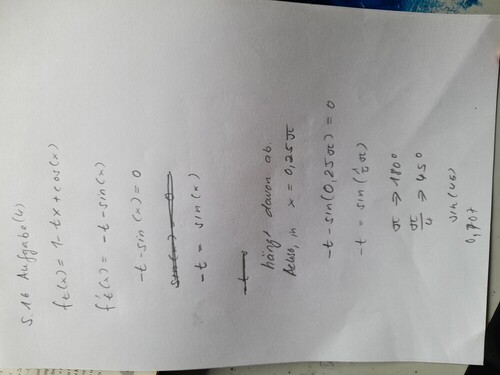 S. 16 Aufgabe(4)
ft(x) = 1-tx+cos(x)
f't(x) = -t-sin(x)
-t-sin(x)=0
sin(x)=0
-t = sin(x)
-t
hängt davon ab.
Also, in x = 0,25π
-t-sin(0,25π) = 0
-t = sin(¼π)
π ⇒ 180°
π/4 ⇒ 45°
sin(45)
0,707